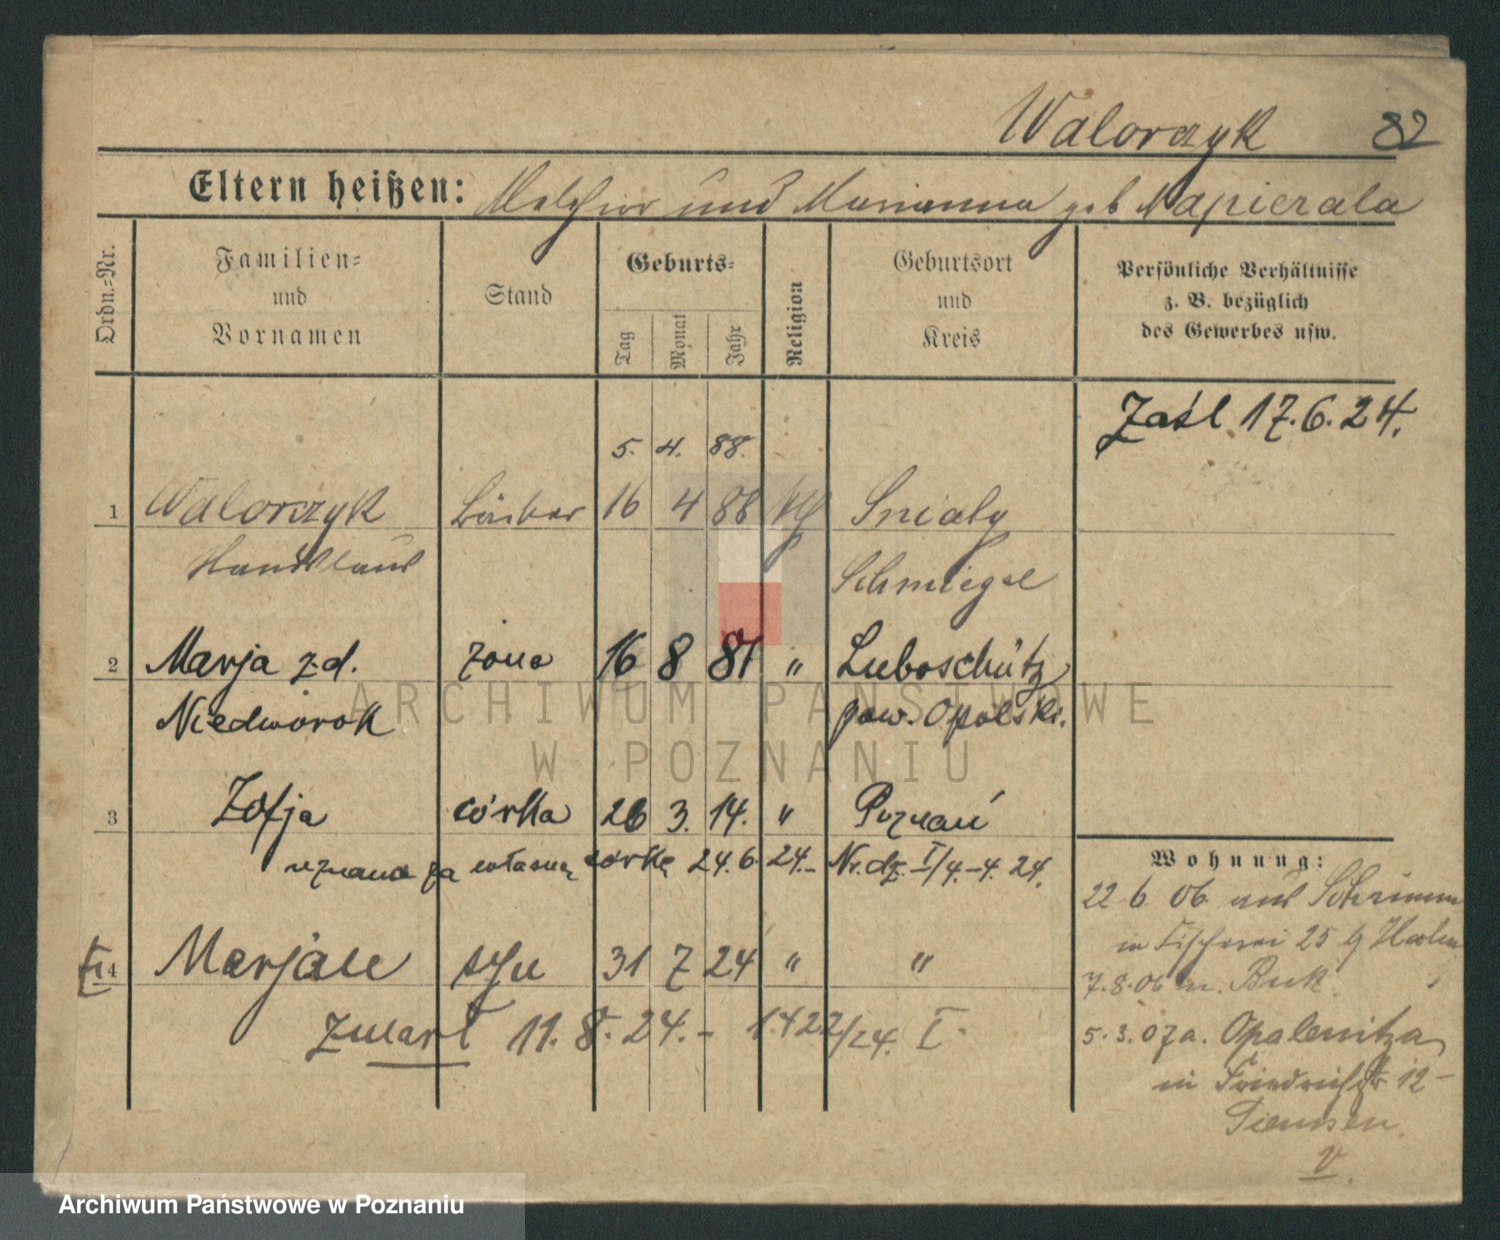 Walorczyk 82
Eltern heißen: Melchior und Marianna geb Napierala
Ordn.-Nr.
Familien- und Vornamen
Stand
Geburts-
Tag Monat Jahr
Religion
Geburtsort und Kreis
Persönliche Verhältnisse
z. B. bezüglich
des Gewerbes usw.
Zaśl 17.6.24.
5. 4. 88.
1 Walorczyk Bäcker 16 4 88 Snialy
Stanislaus Schmiegel
2 Marja z d. żona 16 8 81 " Luboschütz
Niedworok pow. Opolski.
ARCHIWUM PAŃSTWOWE
W POZNANIU
3 Zofja córka 26 3. 14. " Poznań
uznana za własną córkę 24.6.24.- Nr. dz. I/4.-4. 24.
4 Marjan syn 31 7 24 " "
zmarł 11. 8. 24.- 1422/24. I.
Wohnung:
22 6 06 aus Schrimm
in Fischerei 25 b
7.8.06 n. Buk
5.3.07 a. Opalenitza
in Friedrichstr 12-
V.
Archiwum Państwowe w Poznaniu